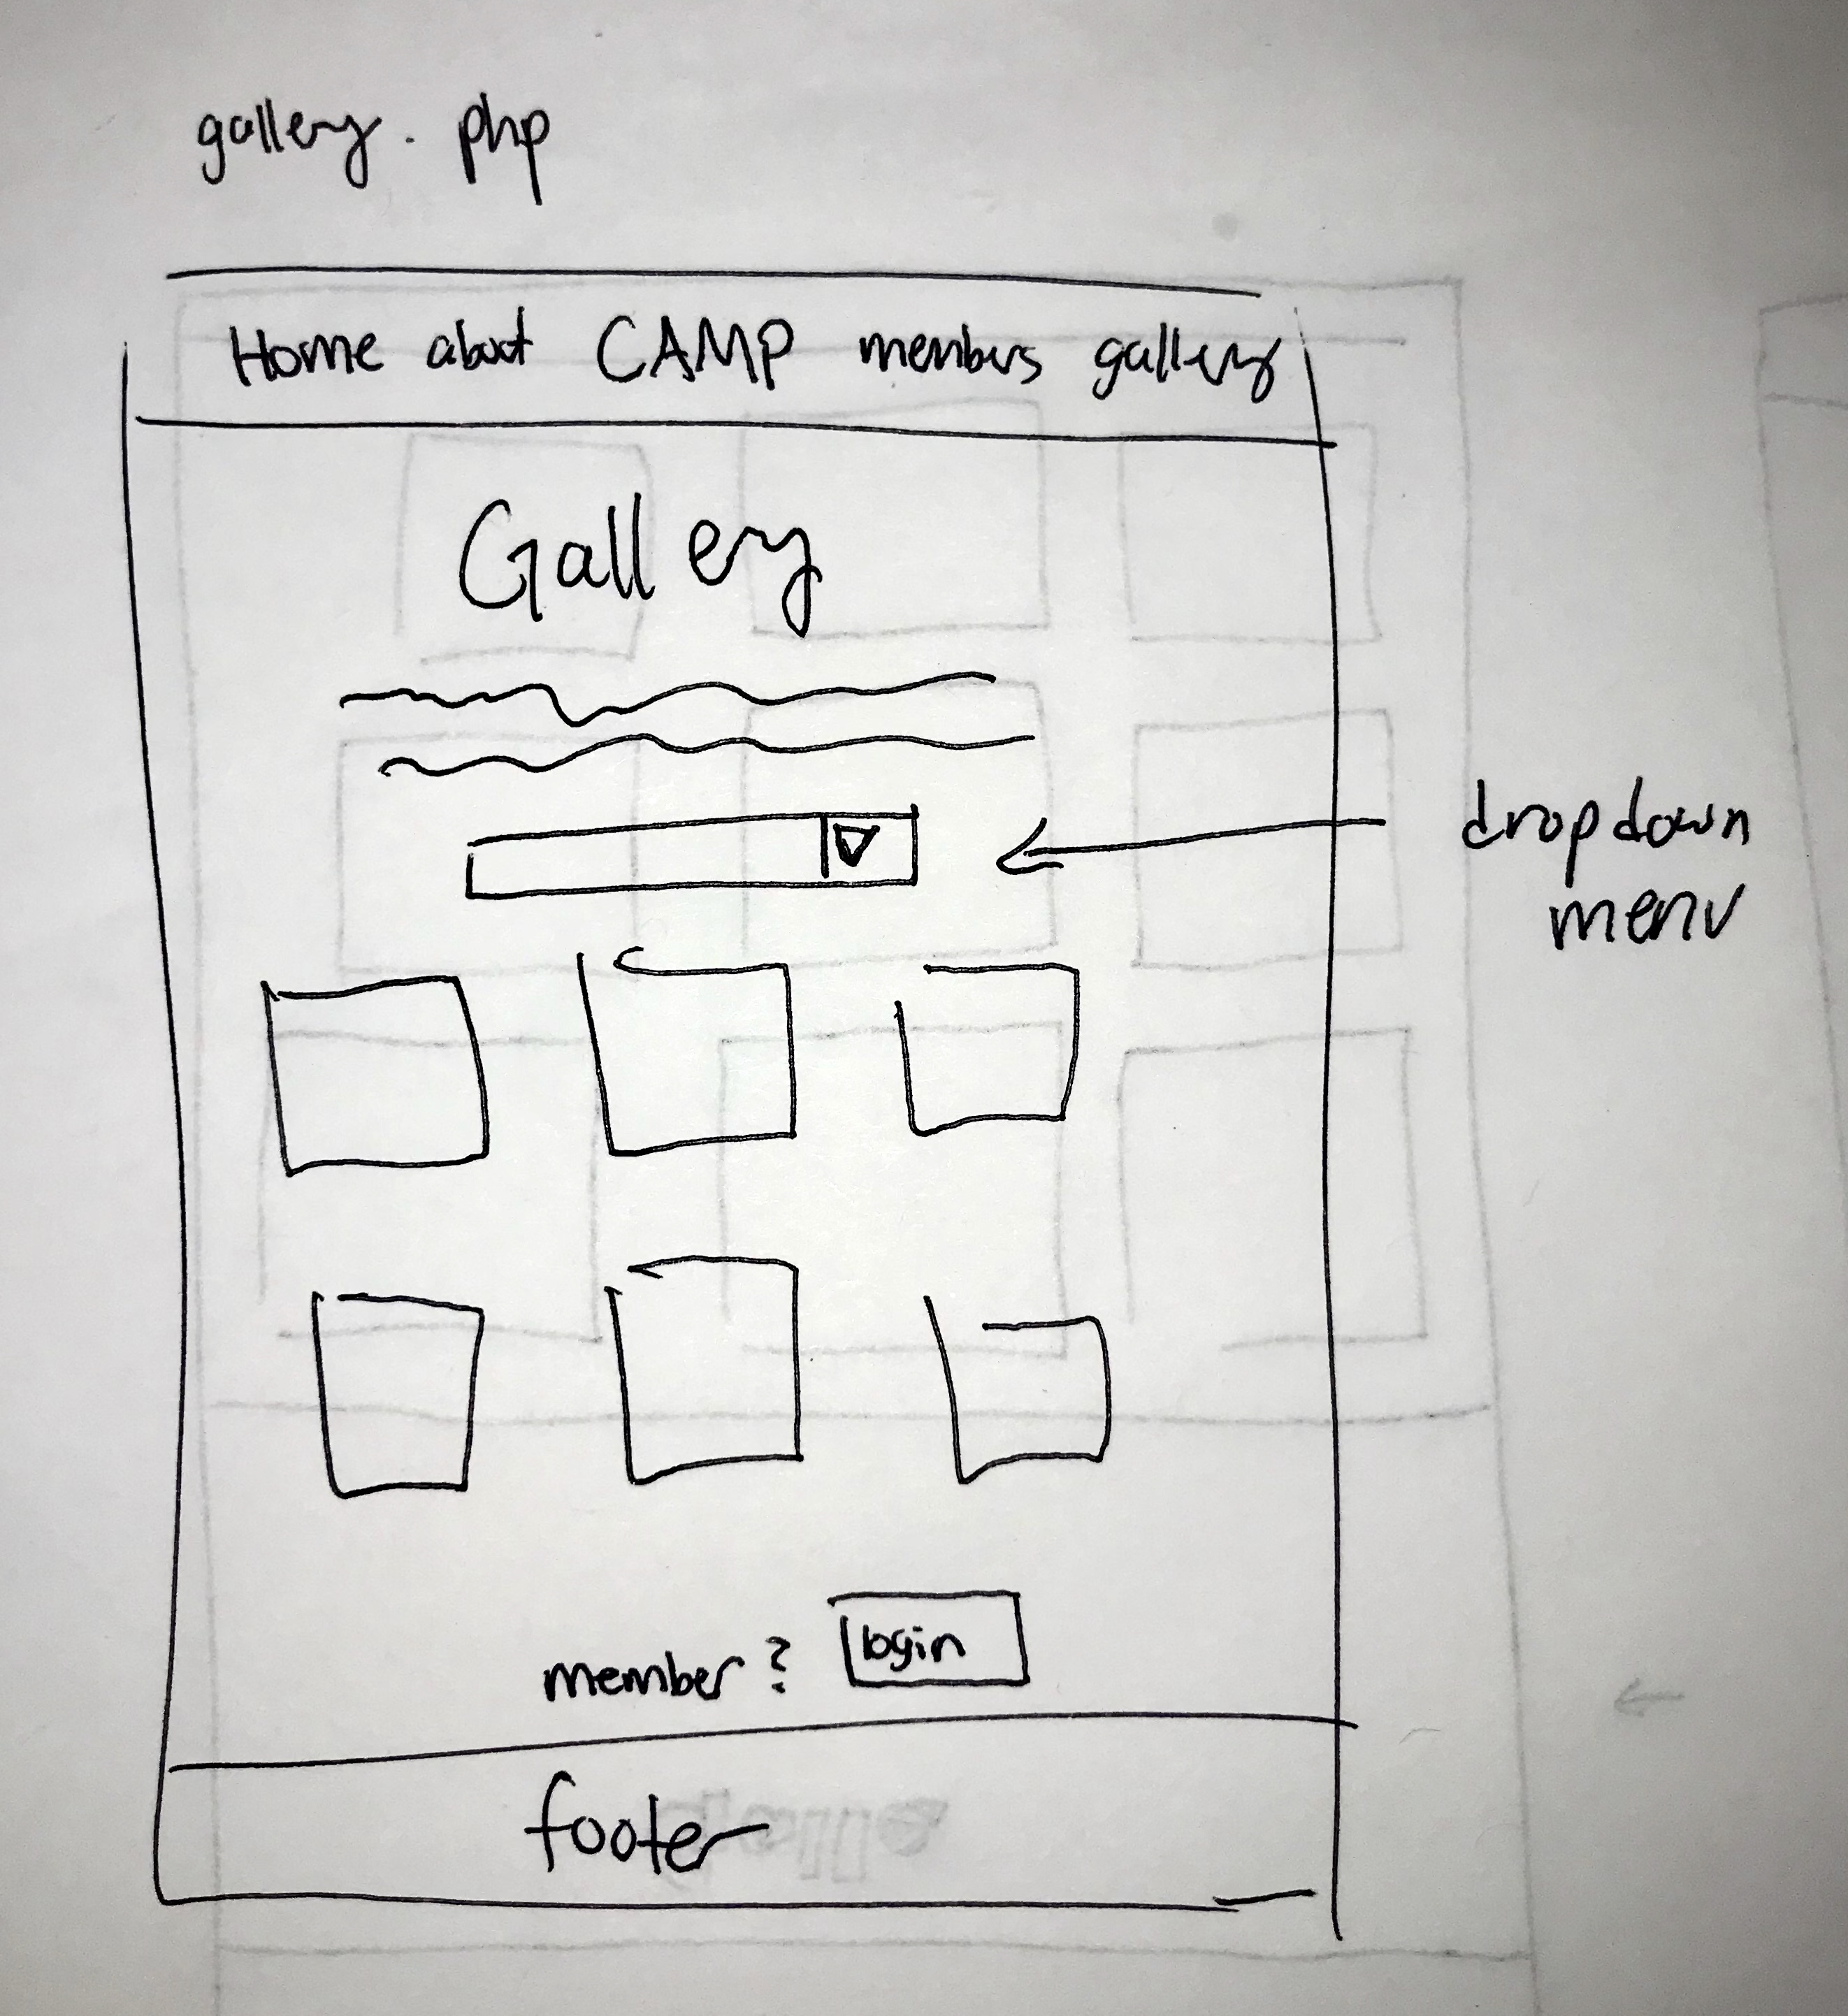 gallery.php
Home about CAMP members gallery
Gallery
dropdown
menu
member? login
footer